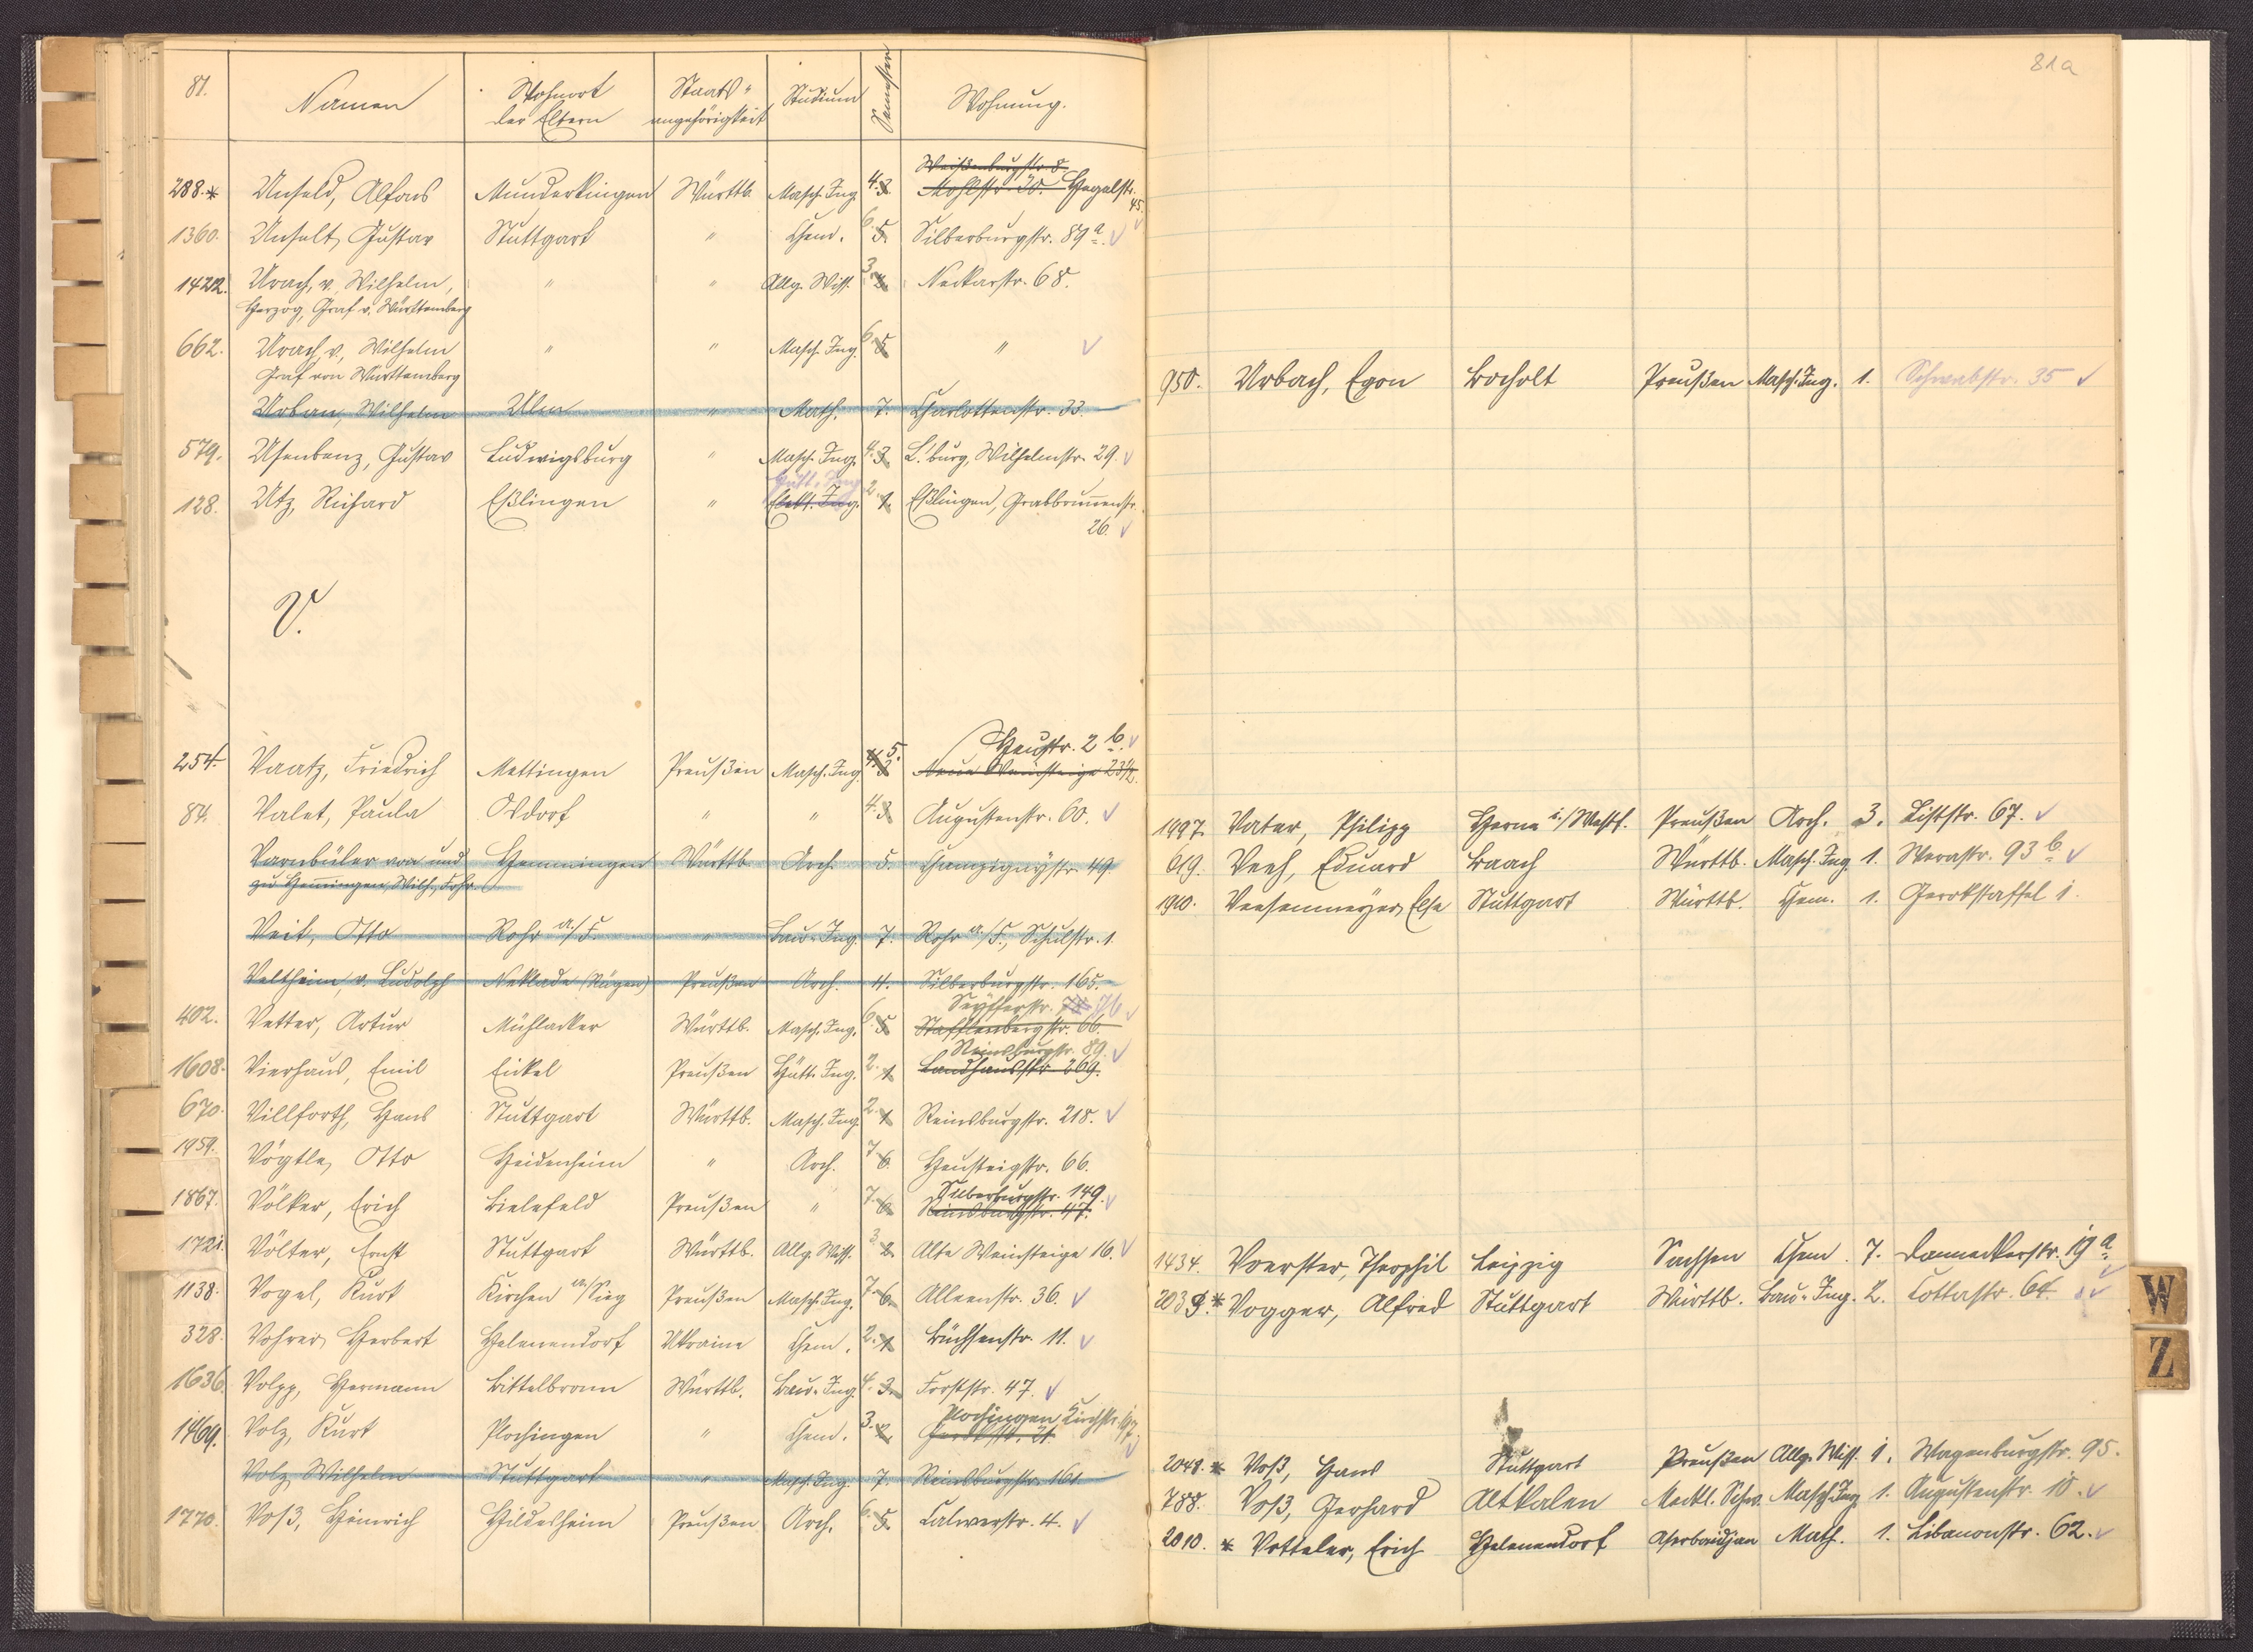 81.
Namen
Wohnort der Eltern
Staats-angehörigkeit
Studium
Semester
Wohnung.
Weißenburgstr. 8.
288.* Unseld, Alfons Munderkingen Württb. Masch. Ing. 4. 3. Mohlstr. 30. Hegelstr. 45.
1360. Unselt, Gustav Stuttgart " Chem. 6. 5. Silberburgstr. 89a. ✓
1422. Urach, v. Wilhelm, " " Allg. Wiss. 3. 2. Neckarstr. 68.
Herzog, Graf v. Württemberg
662. Urach, v., Wilhelm " " Masch. Ing. 6. 5. " ✓
Graf von Württemberg
Urban, Wilhelm Ulm " Math. 7. Charlottenstr. 33.
579. Usenbenz, Gustav Ludwigsburg " Masch. Ing. 4. 3. L'burg, Wilhelmstr. 29. ✓
Hütt. Ing.
128. Utz, Richard Eßlingen " Elekt. Ing. 2. 1. Eßlingen, Grabbrunnenstr.
26. ✓
V.
Heustr. 2b. ✓
254. Vaatz, Friedrich Mettingen Preußen Masch. Ing. 4. 3. 5. Neue Weinsteige 23 1/2.
84. Valet, Paula Osdorf " " 4. 3. Augustenstr. 60. ✓
Varnbüler von und Hemmingen Württb. Arch. 5. Champignystr. 49
zu Hemmingen, Wilh., Frhr.
Veit, Otto Rohr a./F. " Bau-Ing. 7. Rohr a./F., Schulstr. 1.
Veltheim, v. Ludolph Neklade (Rügen) Preußen Arch. 4. Silberburgstr. 165.
Seyfferstr. 76 ✓
402. Vetter, Artur Mühlacker Württb. Masch. Ing. 6. 5. Stafflenbergstr. 66.
Reinsburgstr. 89. ✓
1608. Vierhaus, Emil Eickel Preußen Hütt. Ing. 2. 1. Landhausstr. 269.
670. Villforth, Hans Stuttgart Württb. Masch. Ing. 2. 1. Reinsburgstr. 218. ✓
1959. Vögtle, Otto Heidenheim " Arch. 7. 6. Heusteigstr. 66.
Silberburgstr. 149. ✓
1867. Völker, Erich Bielefeld Preußen " 7. 6. Reinsburgstr. 47.
1721. Völter, Ernst Stuttgart Württb. Allg. Wiss. 3. 2. Alte Weinsteige 16. ✓
1138. Vogel, Kurt Kirchen a./Sieg Preußen Masch. Ing. 7. 6. Alleenstr. 36. ✓
328. Vohrer, Herbert Helenendorf Ukraine Chem. 2. 1. Büchsenstr. 11. ✓
1636. Volpp, Hermann Bittelbronn Württb. Bau-Ing. 4. 3. Forststr. 47. ✓
Plochingen Kirchstr.
1469. Volz, Kurt Plochingen " Chem. 3. 2. ✓
Volz, Wilhelm Stuttgart " Masch. Ing. 7. Reinsburgstr. 161.
1770. Voß, Heinrich Hildesheim Preußen Arch. 6. 5. Calwerstr. 4. ✓
81a
950. Urbach, Egon Bocholt Preußen Masch. Ing. 1. Schwabstr. 35 ✓
1997. Vater, Philipp Herne i./Westf. Preußen Arch. 3. Liststr. 67. ✓
619. Veeh, Eduard Baach Württb. Masch. Ing. 1. Werastr. 93b. ✓
1910. Veesenmeyer, Else Stuttgart Württb. Chem. 1. Gerokstaffel 1.
1434. Voerster, Theophil Leipzig Sachsen Chem. 7. Danneckerstr. 19a. ✓
2039.* Vogger, Alfred Stuttgart Württb. Bau-Ing. 2. Cottastr. 64. ✓
2048.* Voß, Hans Stuttgart Preußen Allg. Wiss. 1. Wagenburgstr. 95.
788. Voß, Gerhard Altkalen Meckl. Schw. Masch. Ing. 1. Augustenstr. 10. ✓
2010.* Votteler, Erich Helenendorf Aserbeidjan Math. 1. Libanonstr. 62. ✓
W
Z